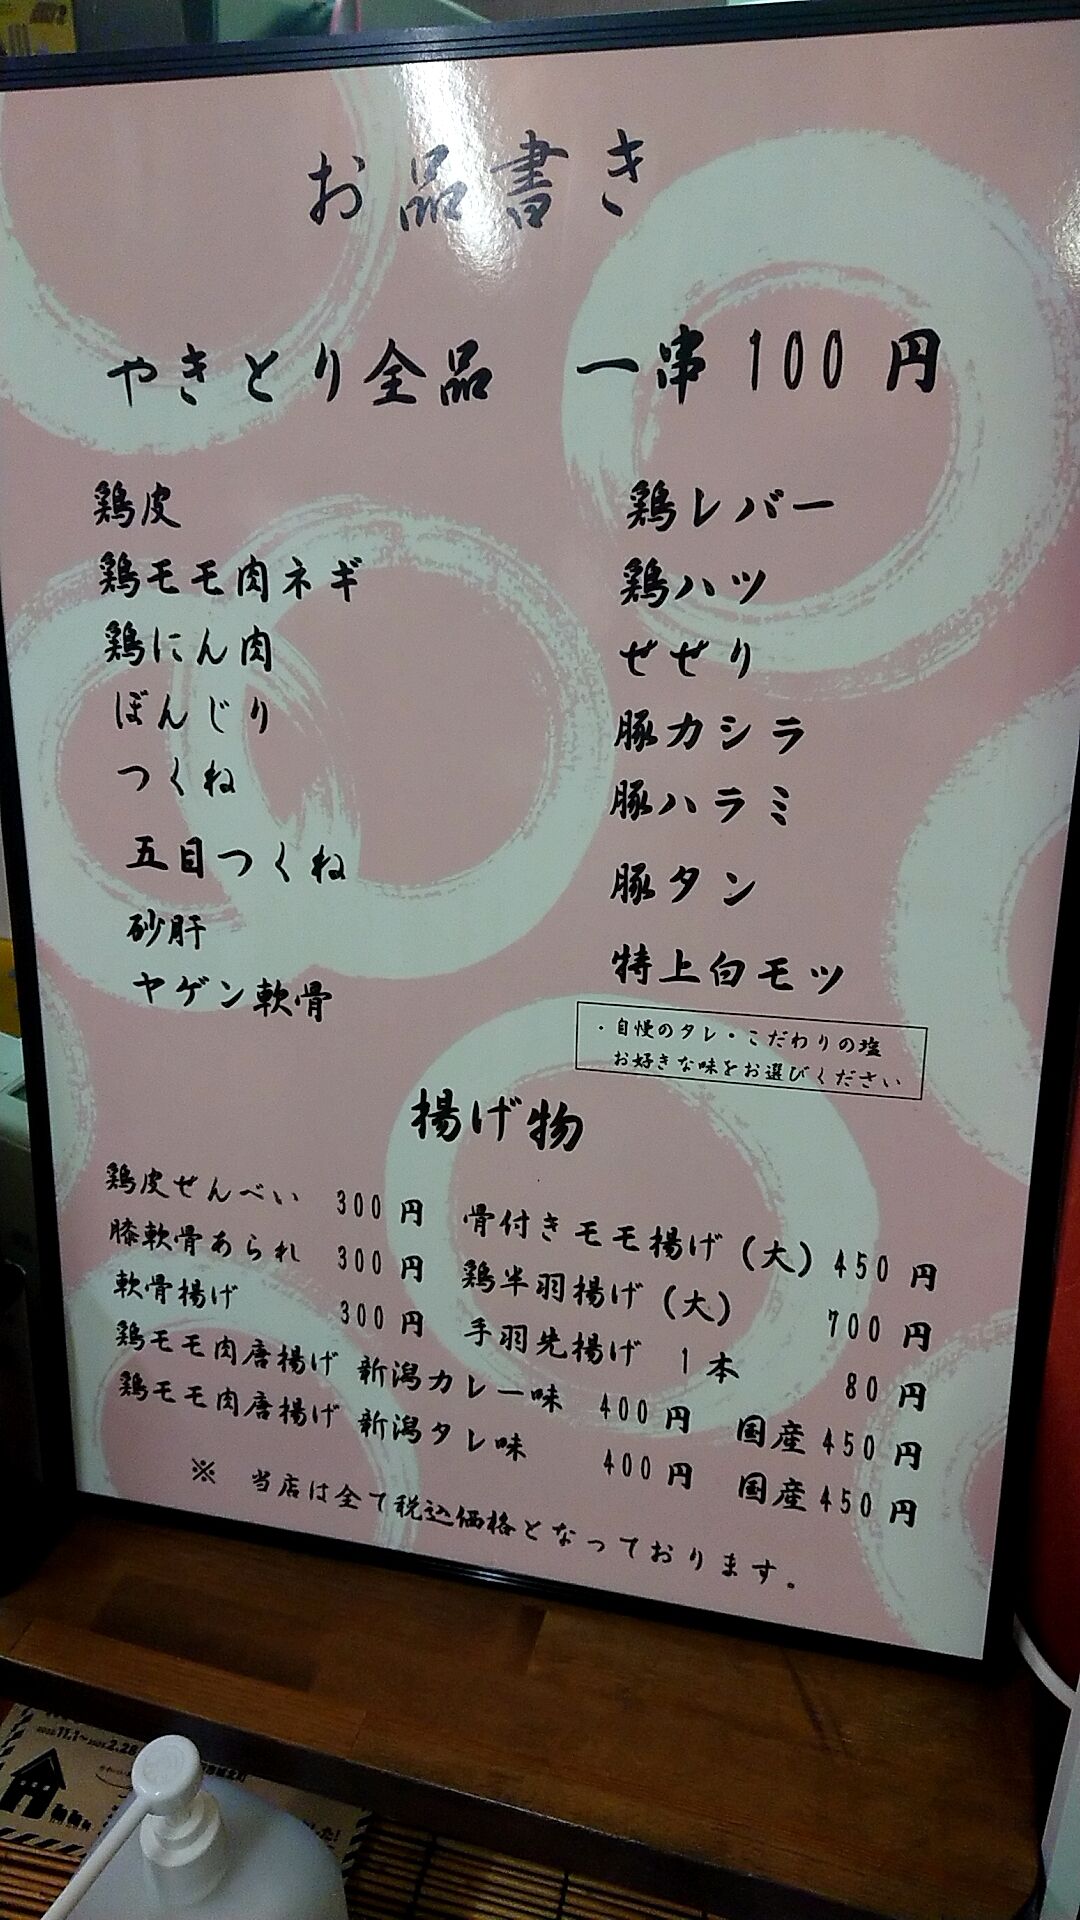 お品書き
やきとり全品 一串100円
鶏皮
鶏モモ肉ネギ
鶏にん肉
ぼんじり
つくね
五目つくね
砂肝
ヤゲン軟骨
鶏レバー
鶏ハツ
せせり
豚カシラ
豚ハラミ
豚タン
特上白モツ
・自慢のタレ・こだわりの塩
お好きな味をお選びください
揚げ物
鶏皮せんべい 300円
膝軟骨あられ 300円
軟骨揚げ 300円
骨付きモモ揚げ(大)450円
鶏半羽揚げ(大) 700円
手羽先揚げ 1本 80円
鶏モモ肉唐揚げ 新潟カレー味 400円 国産450円
鶏モモ肉唐揚げ 新潟タレ味 400円 国産450円
※ 当店は全て税込価格となっております。